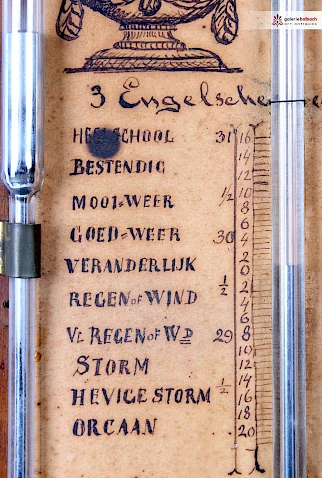 galeriebalbach
art antiques
3 Engelsche
HEELSCHOOL 31 16
14
BESTENDIG 12
10
MOOI=WEER ½ 8
6
GOED=WEER 30 4
2
VERANDERLIJK 0
½ 2
REGEN of WIND 4
6
VL REGEN of WD 29 8
10
STORM 12
14
HEVIGE STORM ½ 16
18
ORCAAN 20